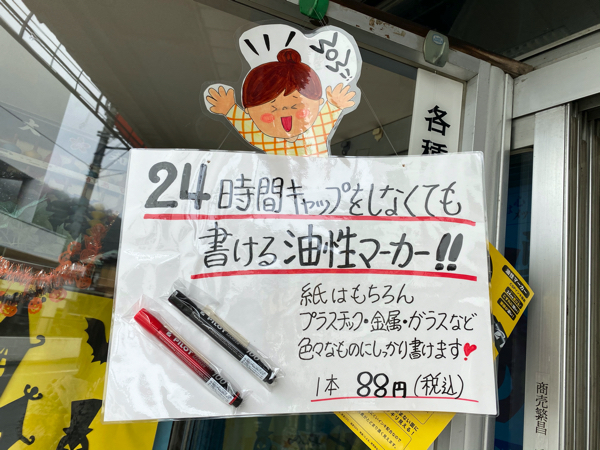 各種
24時間キャップをしなくても
書ける油性マーカー!!
紙はもちろん
プラスチック・金属・ガラスなど
色々なものにしっかり書けます♥
1本 88円(税込)
PILOT
PILOT
商売繁昌